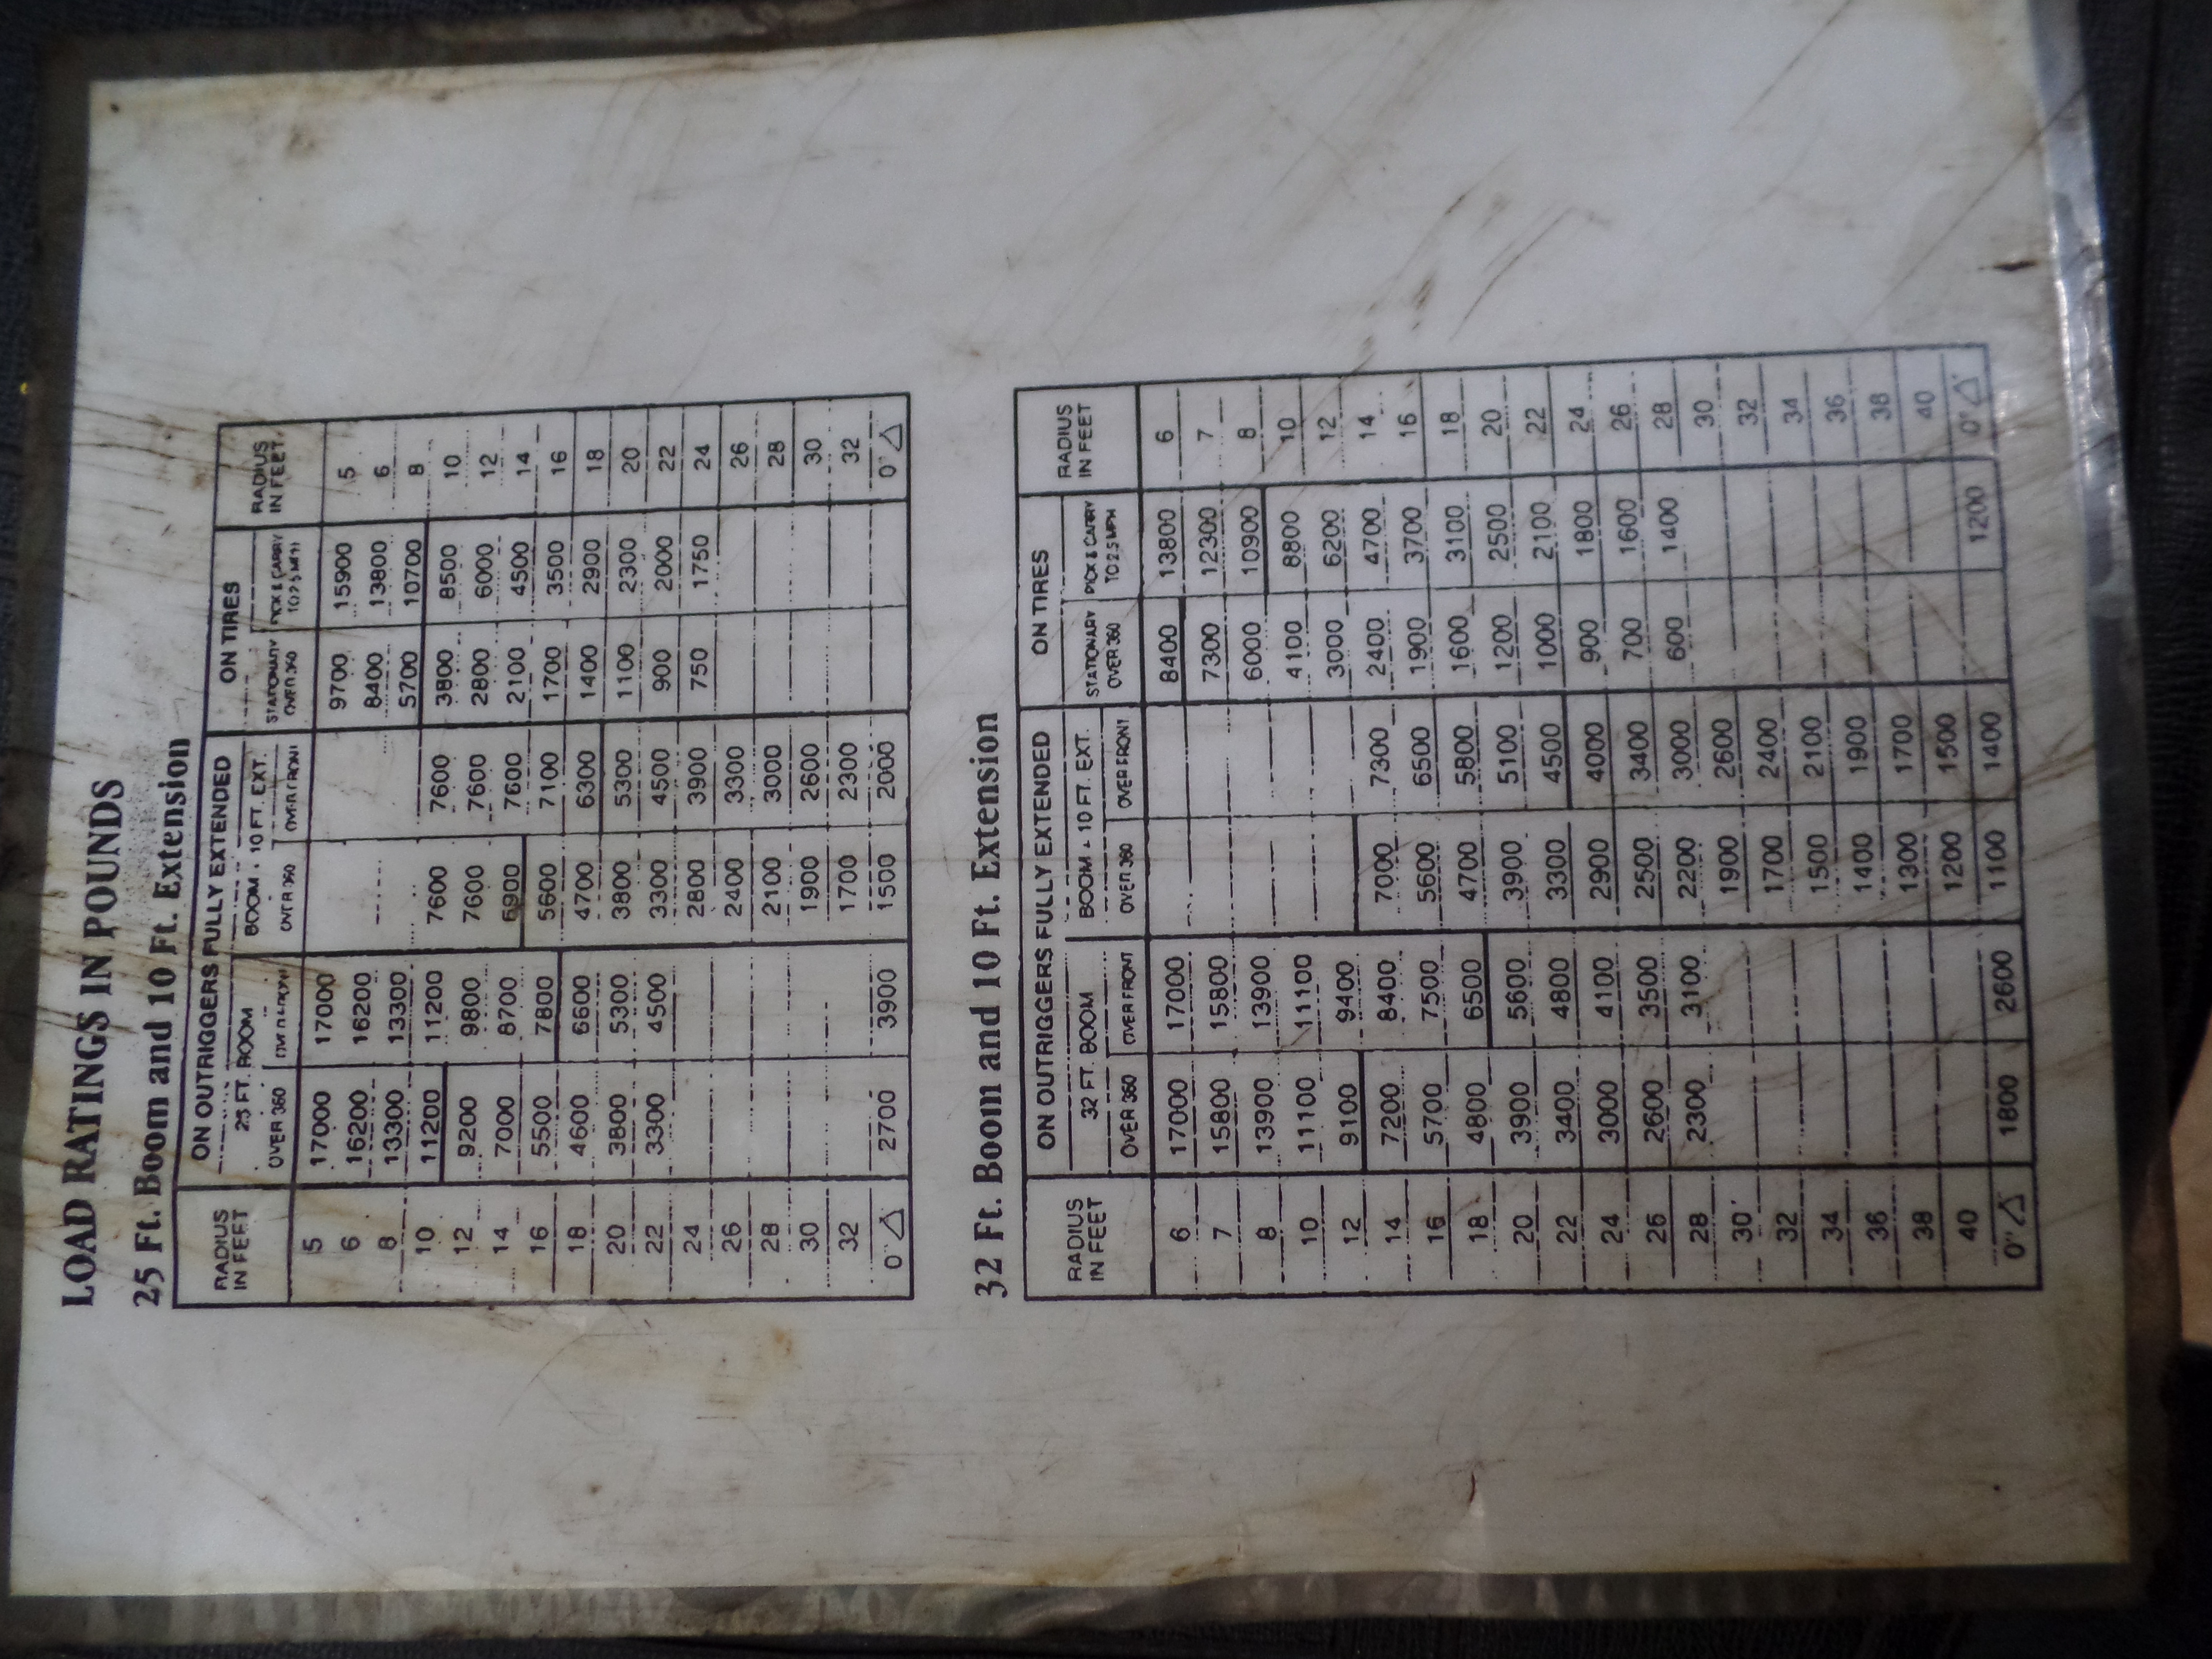 LOAD RATINGS IN POUNDS
25 Ft. Boom and 10 Ft. Extension
RADIUS IN FEET ON OUTRIGGERS FULLY EXTENDED ON TIRES RADIUS IN FEET
25 FT. BOOM BOOM + 10 FT. EXT. STATIONARY OVER 360 PICK & CARRY TO 2.5 MPH
OVER 360 OVER FRONT OVER 360 OVER FRONT
5 17000 17000 9700 15900 5
6 16200 16200 8400 13800 6
8 13300 13300 5700 10700 8
10 11200 11200 7600 7600 3800 8500 10
12 9200 9800 7600 7600 2800 6000 12
14 7000 8700 6900 7600 2100 4500 14
16 5500 7800 5600 7100 1700 3500 16
18 4600 6600 4700 6300 1400 2900 18
20 3800 5300 3800 5300 1100 2300 20
22 3300 4500 3300 4500 900 2000 22
24 2800 3900 750 1750 24
26 2400 3300 26
28 2100 3000 28
30 1900 2600 30
32 1700 2300 32
0° 2700 3900 1500 2000 0°
32 Ft. Boom and 10 Ft. Extension
RADIUS IN FEET ON OUTRIGGERS FULLY EXTENDED ON TIRES RADIUS IN FEET
32 FT. BOOM BOOM + 10 FT. EXT. STATIONARY OVER 360 PICK & CARRY TO 2.5 MPH
OVER 360 OVER FRONT OVER 360 OVER FRONT
6 17000 17000 8400 13800 6
7 15800 15800 7300 12300 7
8 13900 13900 6000 10900 8
10 11100 11100 4100 8800 10
12 9100 9400 3000 6200 12
14 7200 8400 7000 7300 2400 4700 14
16 5700 7500 5600 6500 1900 3700 16
18 4800 6500 4700 5800 1600 3100 18
20 3900 5600 3900 5100 1200 2500 20
22 3400 4800 3300 4500 1000 2100 22
24 3000 4100 2900 4000 900 1800 24
26 2600 3500 2500 3400 700 1600 26
28 2300 3100 2200 3000 600 1400 28
30 1900 2600 30
32 1700 2400 32
34 1500 2100 34
36 1400 1900 36
38 1300 1700 38
40 1200 1500 40
0° 1800 2600 1100 1400 1200 0°